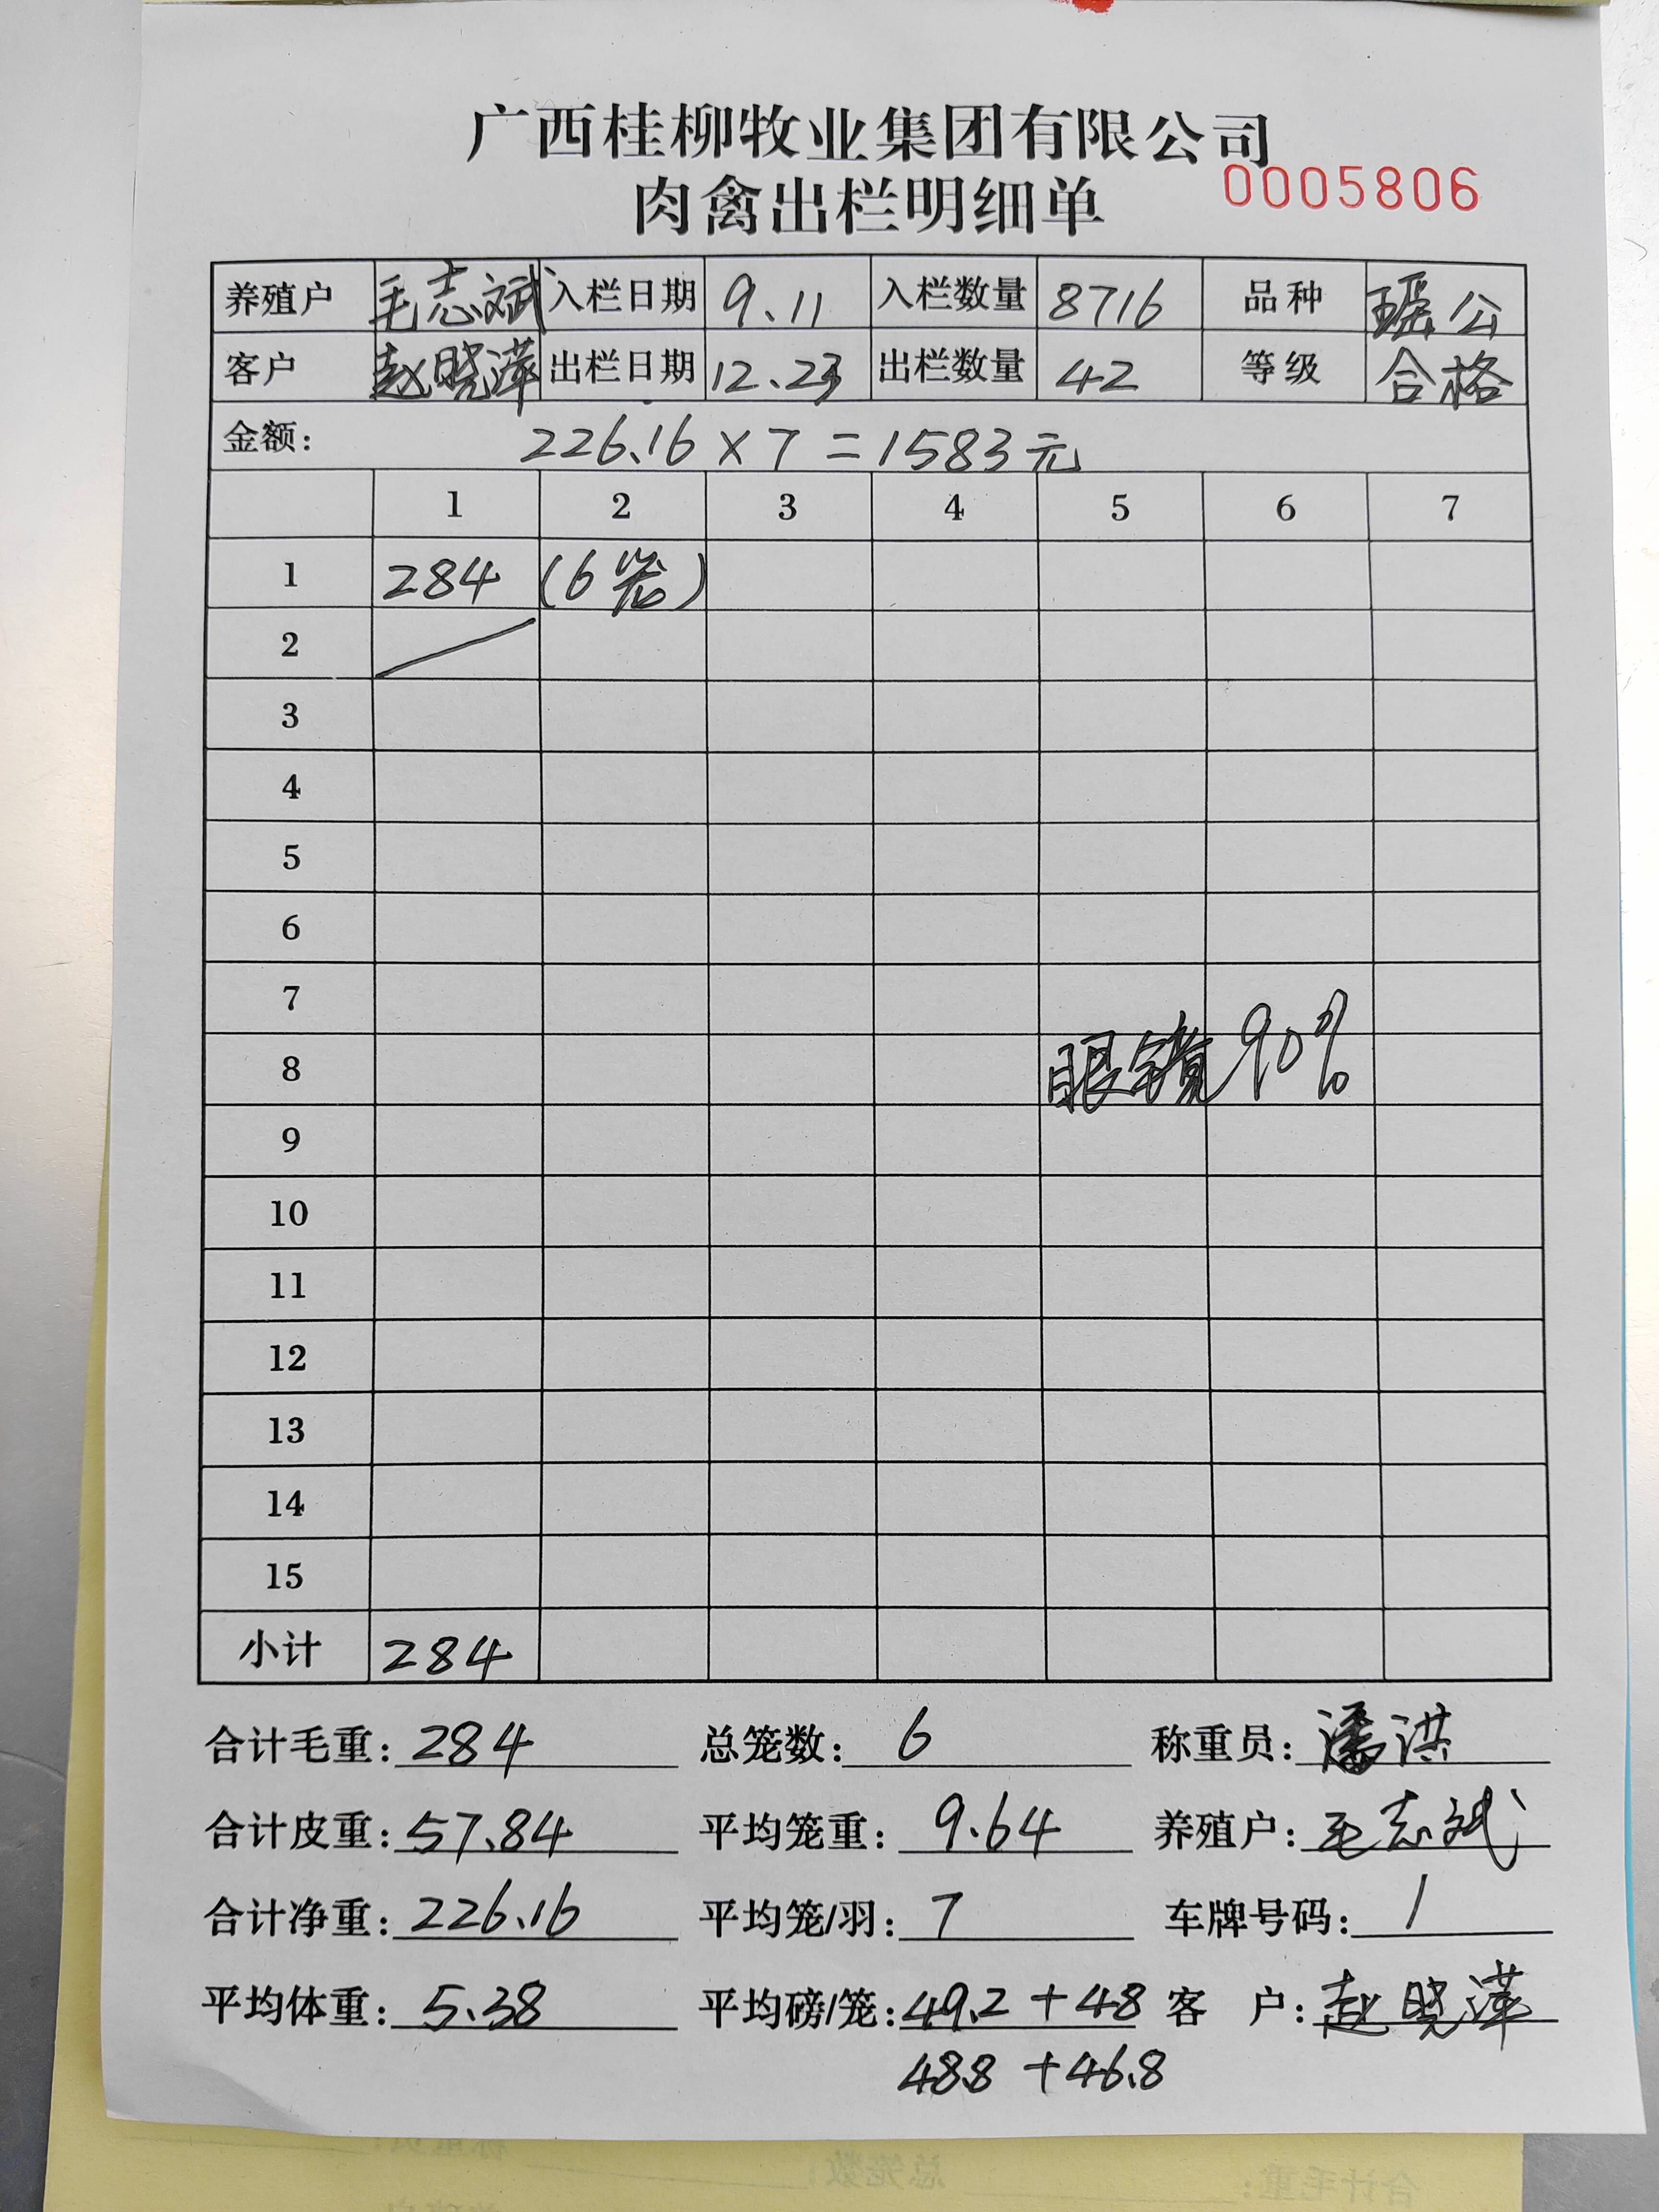 广西桂柳牧业集团有限公司
肉禽出栏明细单 0005806
养殖户 毛志斌 入栏日期 9.11 入栏数量 8716 品种 瑶公
客户 赵晓萍 出栏日期 12.23 出栏数量 42 等级 合格
金额: 226.16 × 7 = 1583元
1 2 3 4 5 6 7
1 284 (6笼)
2
3
4
5
6
7
8 眼镜90%
9
10
11
12
13
14
15
小计 284
合计毛重: 284 总笼数: 6 称重员: 潘洪
合计皮重: 57.84 平均笼重: 9.64 养殖户: 毛志斌
合计净重: 226.16 平均笼/羽: 7 车牌号码: /
平均体重: 5.38 平均磅/笼: 49.2 + 48 客 户: 赵晓萍
48.8 + 46.8